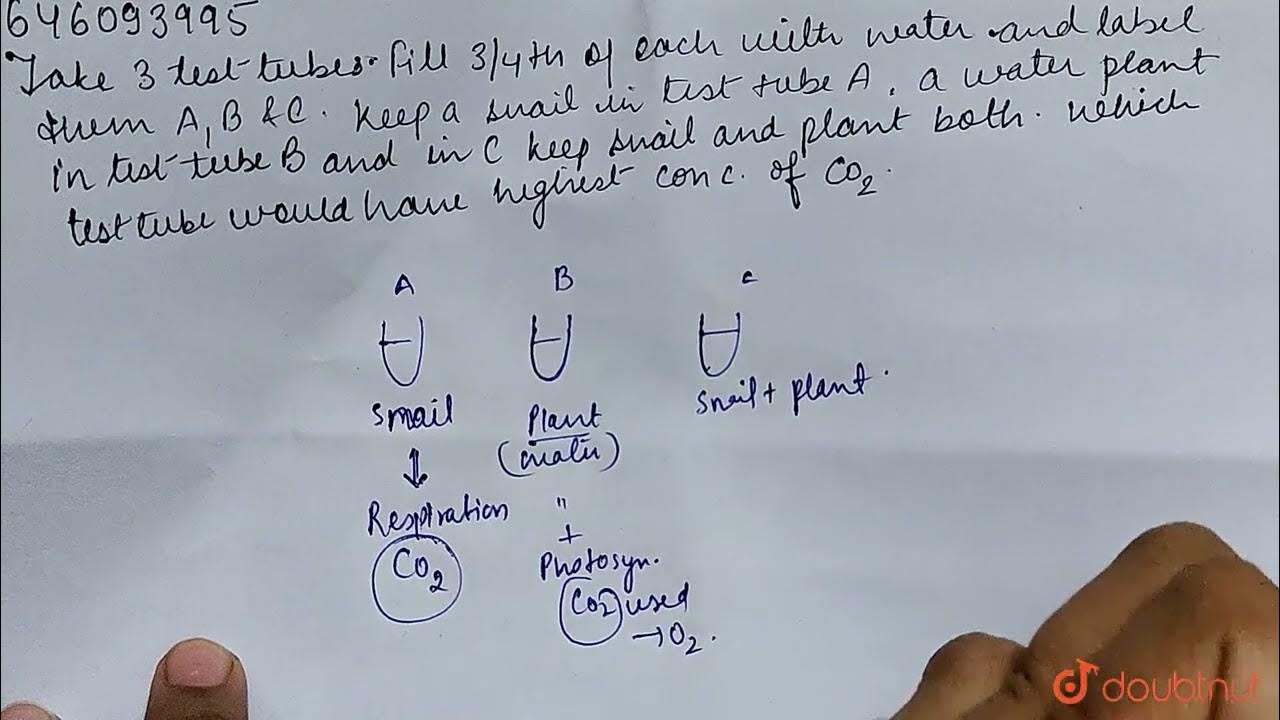 646093995
Take 3 test tubes. Fill 3/4th of each with water and label
them A, B & C. Keep a snail in test tube A, a water plant
in test tube B and in C keep snail and plant both. Which
test tube would have highest conc. of CO2.
A B C
Snail Plant Snail + plant.
(water)
⇓
Respiration "
+
CO2 Photosyn.
CO2 used
→O2.
doubtnut